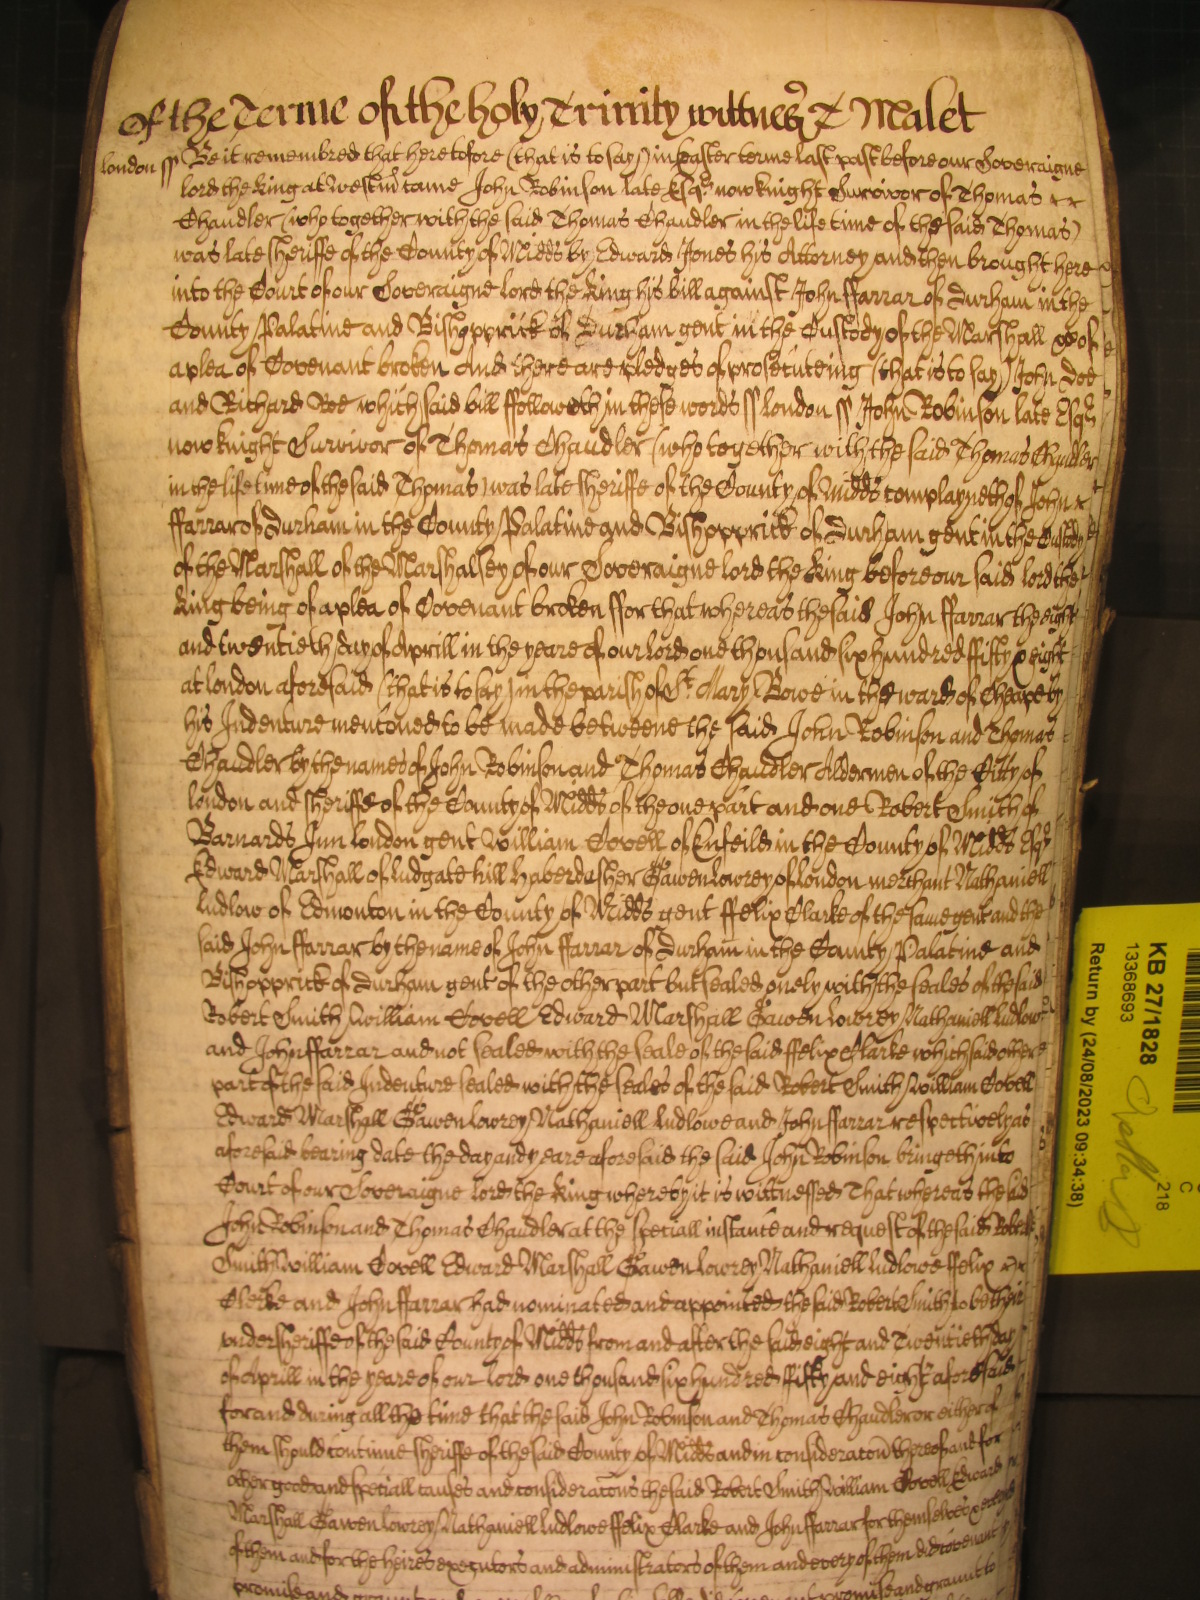 Of the Terme of the holy Trinity wittnes T Malet
London ss Be it remembred that heretofore (that is to say) in Easter terme last past before our Soveraigne
lord the King at Westm came John Robinson late Esqr now knight Survivor of Thomas
Chandler (who together with the said Thomas Chandler in the life time of the said Thomas)
was late sheriffe of the County of Midds by Edward Jones his Attorney and then brought here
into the Court of our Soveraigne lord the King his bill against John ffarrar of Durham in the
County Palatine and Bishopprick of Durham gent in the Custody of the Marshall &c of
a plea of Covenant broken And there are pledges of prosecuteing (that is to say) John Doe
and Richard Roe which said bill ffolloweth in these words ss London ss John Robinson late Esqr
now knight Survivor of Thomas Chandler (who together with the said Thomas Chandler
in the life time of the said Thomas) was late sheriffe of the County of Midds complayneth of John
ffarrar of Durham in the County Palatine and Bishopprick of Durham gent in the Custody
of the Marshall of the Marshalsey of our Soveraigne lord the King before our said lord the
King being of a plea of Covenant broken ffor that whereas the said John ffarrar the eight
and twentieth day of Aprill in the yeare of our Lord one thousand six hundred ffifty eight
at london aforesaid (that is to say) in the parish of St Mary Bowe in the ward of Cheape by
his Indenture mentoned to be made betweene the said John Robinson and Thomas
Chandler by the names of John Robinson and Thomas Chandler Aldermen of the Citty of
london and sheriffe of the County of Midds of the one part and one Robert Smith of
Barnards Inn london gent William Covell of Enfeild in the County of Midds Esqr
Edward Marshall of ludgate hill Haberdasher Gawen Lowrey of london merchant Nathaniell
Ludlow of Edmonton in the County of Midds gent ffelix Clarke of the same gent and the
said John ffarrar by the name of John ffarrar of Durham in the County Palatine and
Bishopprick of Durham gent of the other part but sealed onely with the seales of the said
Robert Smith William Covell Edward Marshall Gawen Lowrey Nathaniell Ludlow
and John ffarrar and not sealed with the seale of the said ffelix Clarke which said other
part of the said Indenture sealed with the seales of the said Robert Smith William Covell
Edward Marshall Gawen Lowrey Nathaniell Ludlowe and John ffarrar respectively as
aforesaid bearing date the day and yeare aforesaid the said John Robinson bringeth into
Court of our Soveraigne lord the King whereby it is wittnessed That whereas the said
John Robinson and Thomas Chandler at the speciall instance and request of the said Robert
Smith William Covell Edward Marshall Gawen Lowrey Nathaniell Ludlowe ffelix
Clerke and John ffarrar had nominated and appointed the said Robert Smith to be their
undersheriffe of the said County of Midds from and after the said eight and Twentieth day
of Aprill in the yeare of our lord one thousand six hundred ffifty and eight aforesaid
for and during all the time that the said John Robinson and Thomas Chandler or either of
them should continue sheriffe of the said County of Midds and in consideraton thereof and for
other good and speciall causes and consideratons the said Robert Smith William Covell Edward
Marshall Gawen Lowrey Nathaniell Ludlowe ffelix Clarke and John ffarrar for themselves
of them and for the heires executors and administrators of them and every of them did covenant
promise and graunt promise and graunt to
KB 27/1828
13368693
Return by (24/08/2023 09:34:38)
218
C